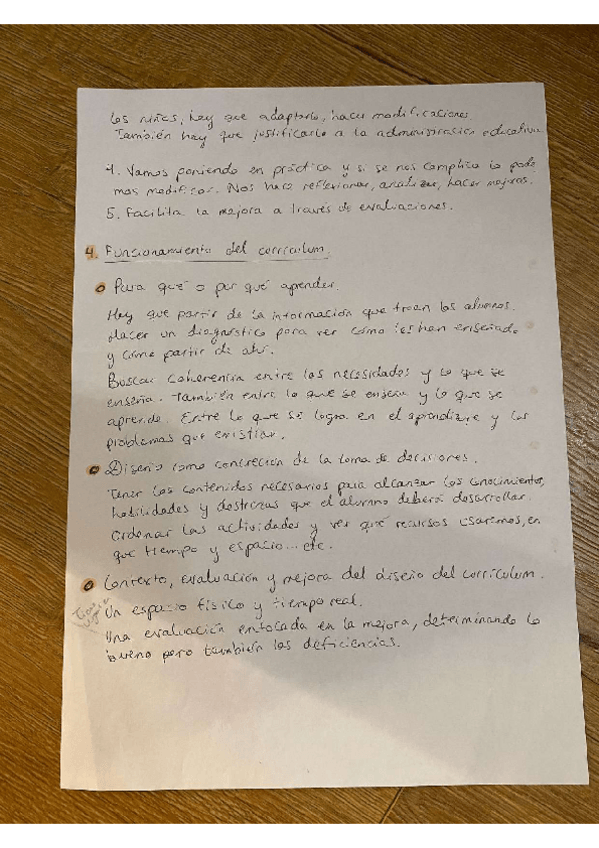 los niños, hay que adaptarlo, hacer modificaciones.
También hay que justificarlo a la administración educativa.
4. Vamos poniendo en práctica y si se nos complica lo pode
mos modificar. Nos hace reflexionar, analizar, hacer mejoras.
5. Facilita la mejora a través de evaluaciones.
4. Funcionamiento del currículum.
Para qué o por qué aprender.
Hay que partir de la información que traen los alumnos.
Hacer un diagnóstico para ver cómo les han enseñado
y cómo partir de ahí.
Buscar coherencia entre las necesidades y lo que se
enseña. También entre lo que se enseña y lo que se
aprende. Entre lo que se logra en el aprendizaje y los
problemas que existían.
Diseño como concreción de la toma de decisiones.
Tener los contenidos necesarios para alcanzar los conocimientos,
habilidades y destrezas que el alumno deberá desarrollar.
Ordenar las actividades y ver qué recursos usaremos, en
que tiempo y espacio... etc.
Contexto, evaluación y mejora del diseño del currículum.
Un espacio físico y tiempo real.
Una evaluación enfocada en la mejora, determinando lo
bueno pero también las deficiencias.